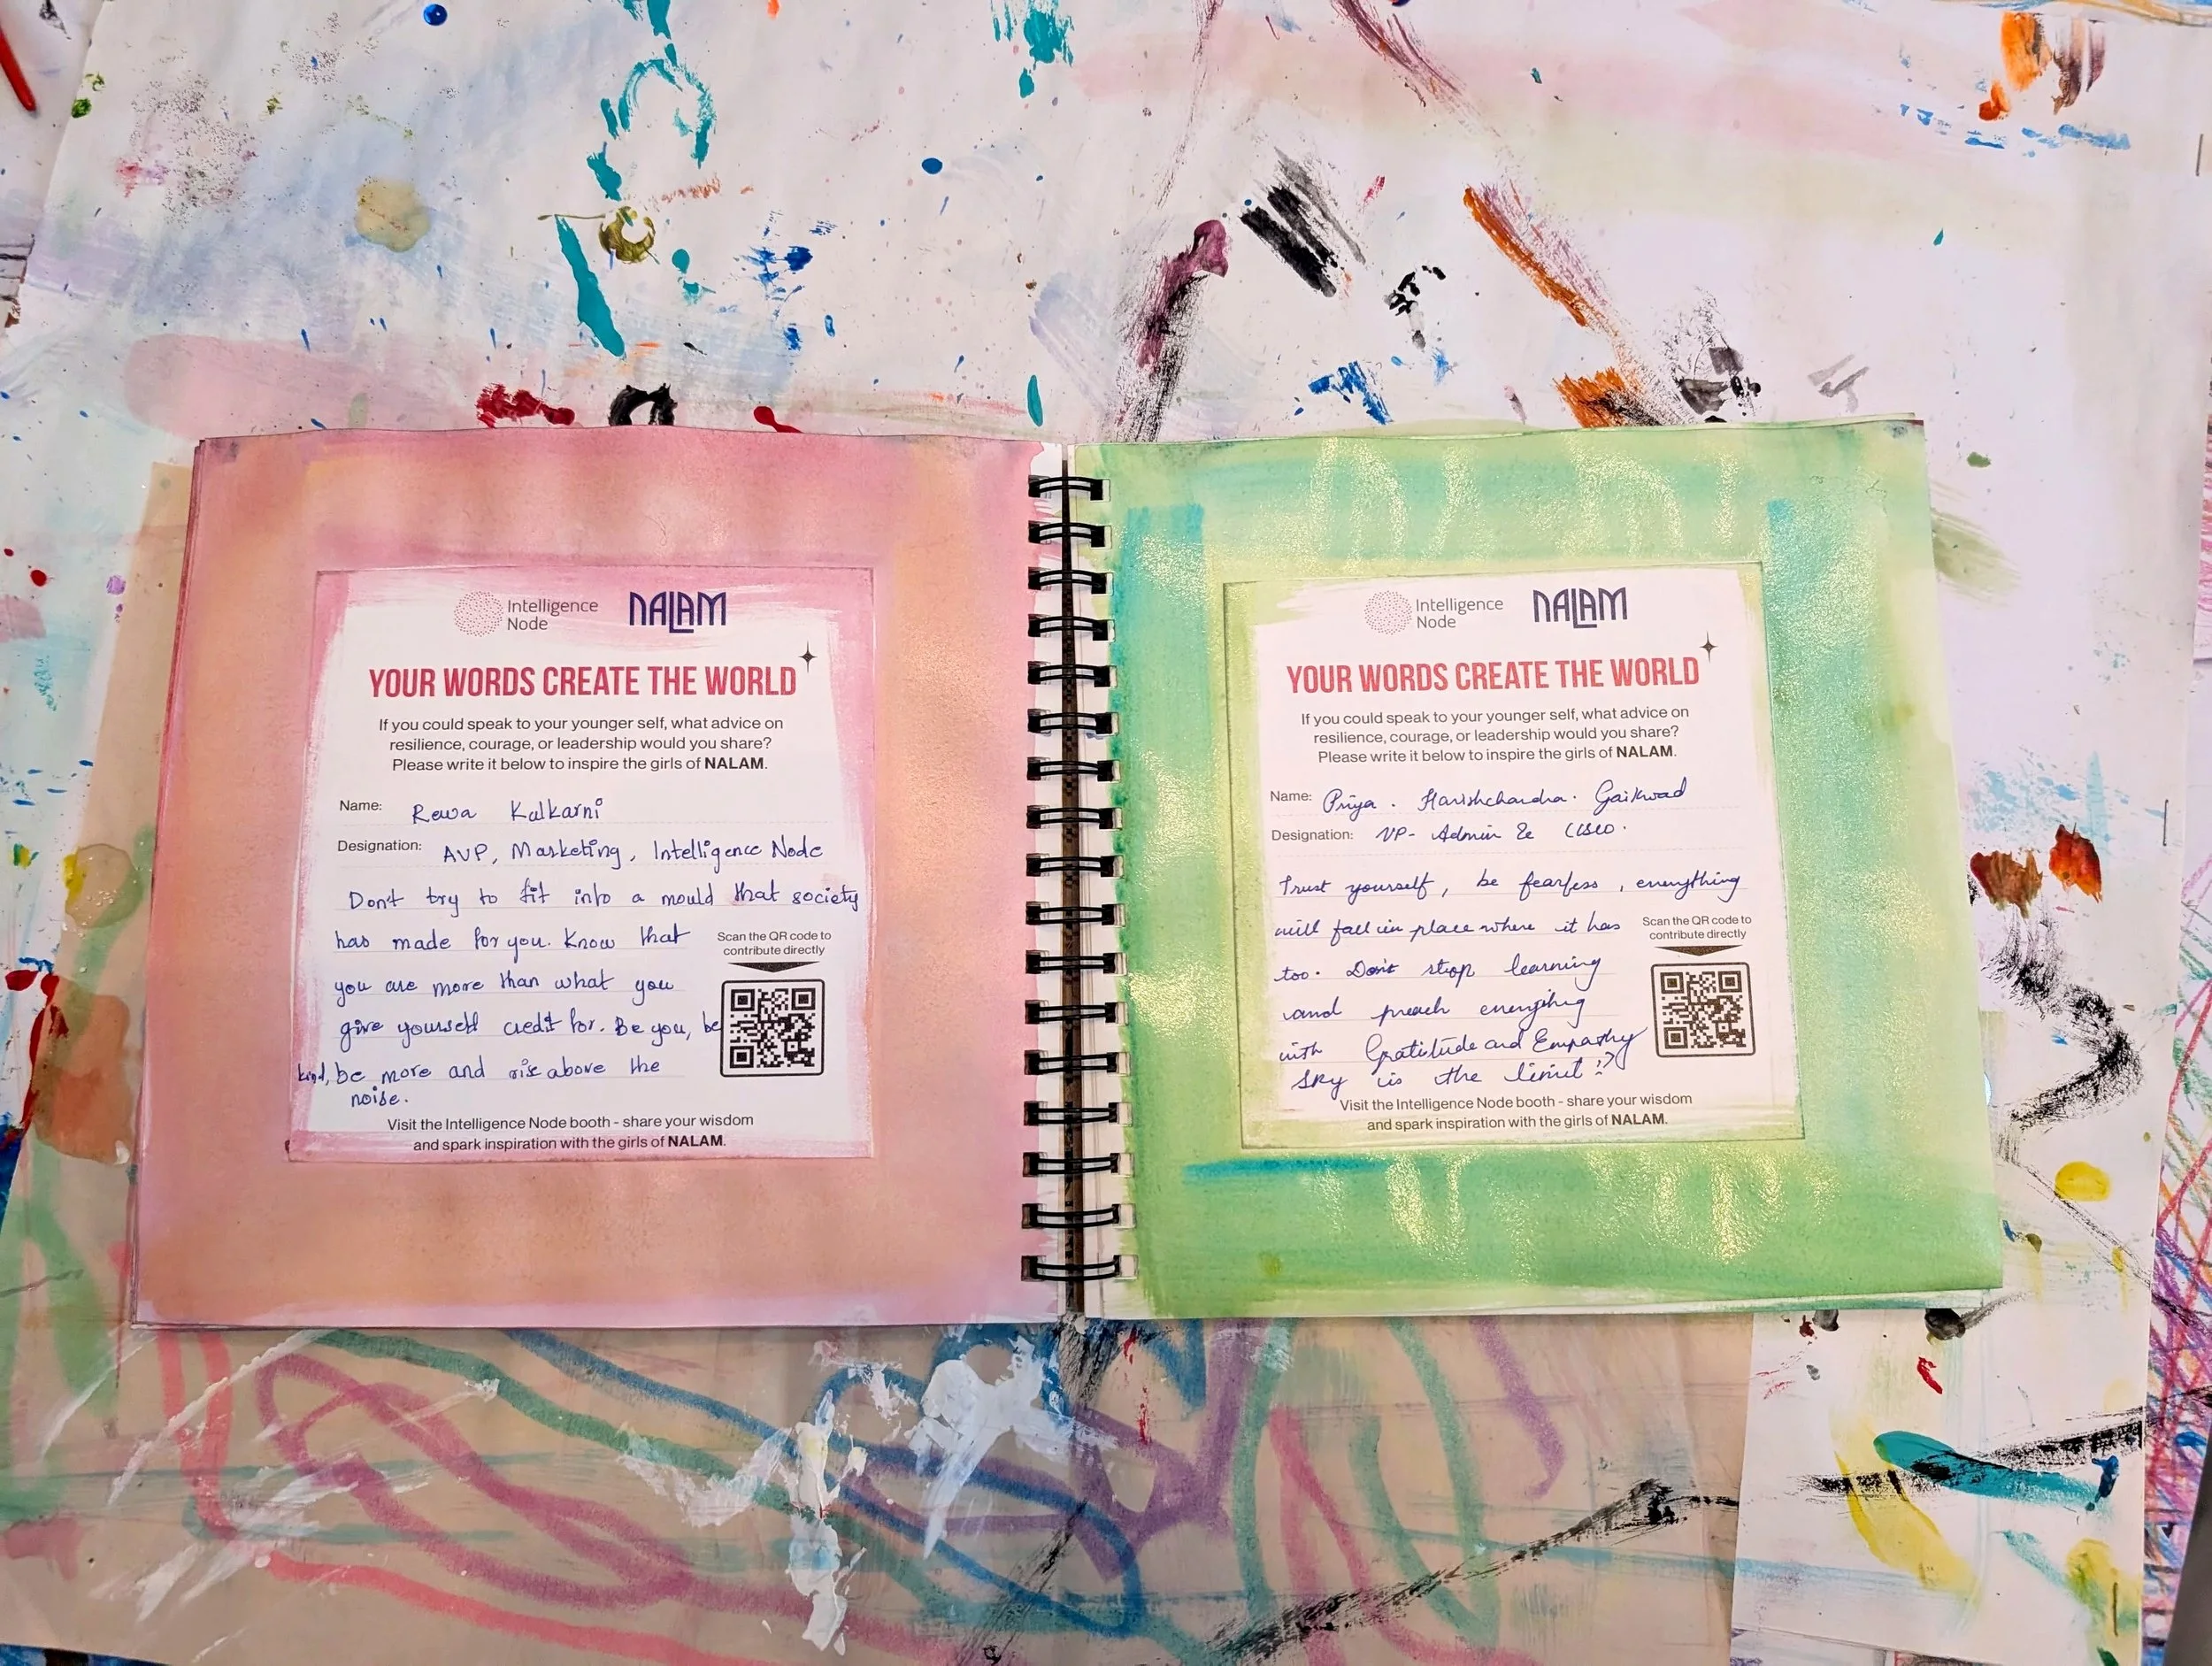 Intelligence
Node
NALAM
YOUR WORDS CREATE THE WORLD
If you could speak to your younger self, what advice on
resilience, courage, or leadership would you share?
Please write it below to inspire the girls of NALAM.
Name: Rewa Kalkarni
Designation: AVP, Marketing, Intelligence Node
Don't try to fit into a mould that society
has made for you. Know that
you are more than what you
give yourself credit for. Be you, be
kind, be more and rise above the
noise.
Scan the QR code to
contribute directly
Visit the Intelligence Node booth - share your wisdom
and spark inspiration with the girls of NALAM.
Intelligence
Node
NALAM
YOUR WORDS CREATE THE WORLD
If you could speak to your younger self, what advice on
resilience, courage, or leadership would you share?
Please write it below to inspire the girls of NALAM.
Name: Priya. Harishchandra. Gaikwad
Designation: VP- Admin & CISO.
Trust yourself, be fearless, everything
will fall in place where it has
too. Don't stop learning
and preach everything
with Gratitude and Empathy
Sky is the limit!!
Scan the QR code to
contribute directly
Visit the Intelligence Node booth - share your wisdom
and spark inspiration with the girls of NALAM.